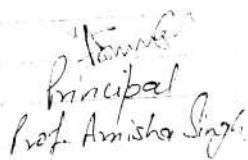 Principal
Prof. Amisha Singh